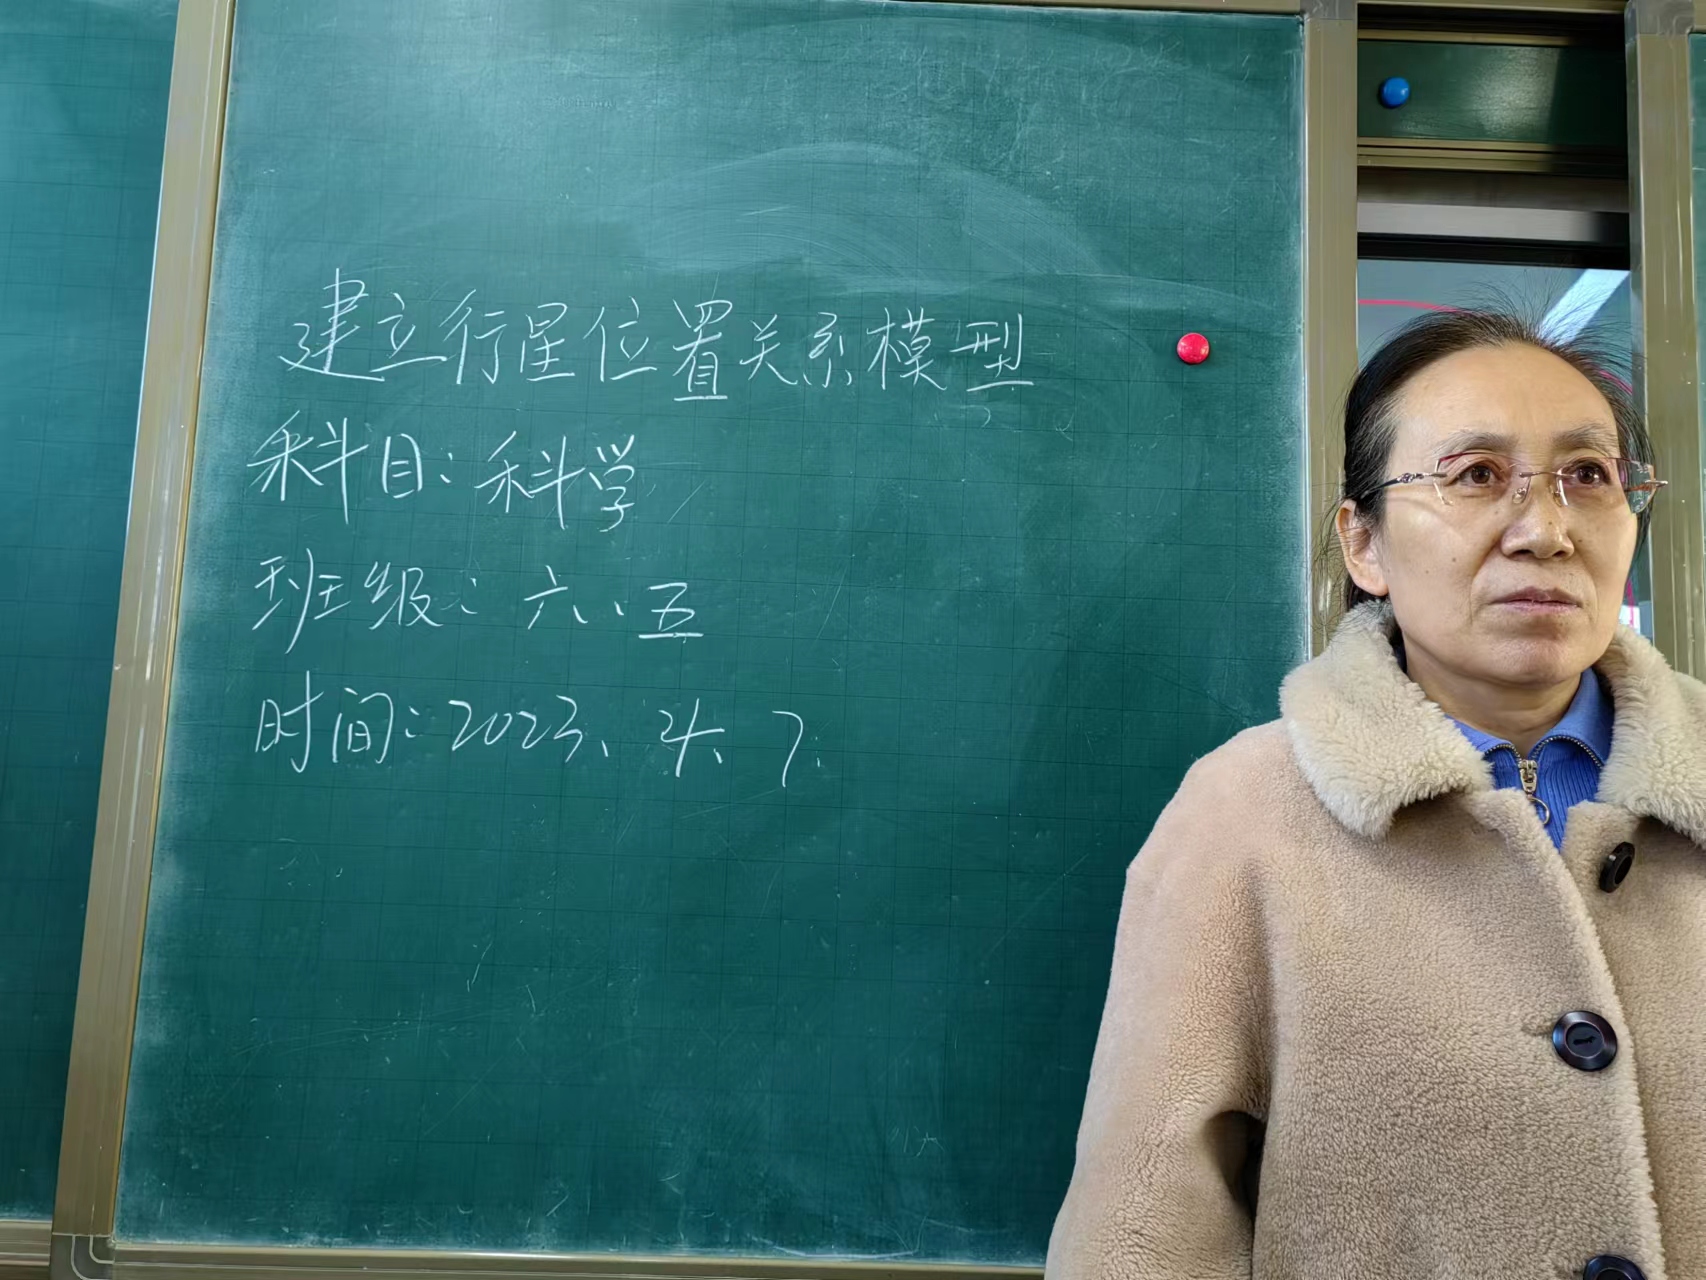 建立行星位置关系模型
科目:科学
班级:六、五
时间:2023、4、7.